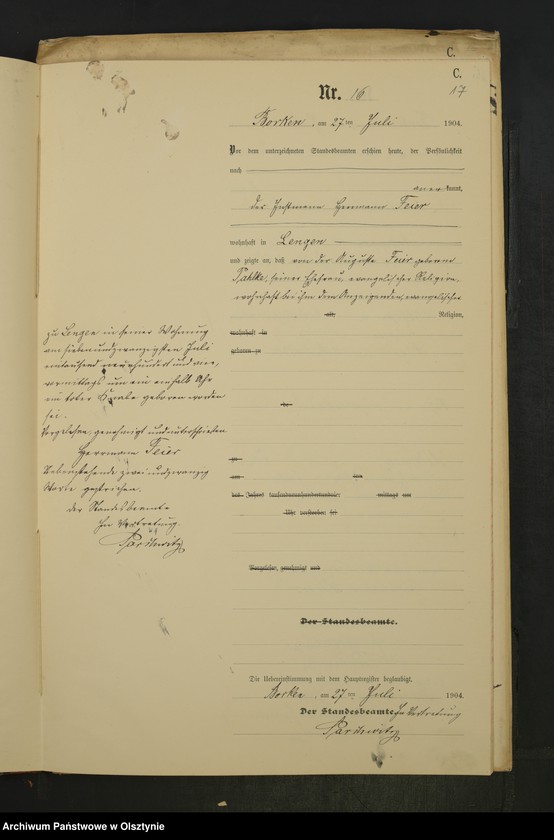 C.
C.
Nr. 16
17
Borken, am 27ten Juli 1904.
Vor dem unterzeichneten Standesbeamten erschien heute, der Persönlichkeit
nach
kannt,
der Instmann Hermann Feier
wohnhaft in Lengen
und zeigte an, daß von der Auguste Feier geborene
Pahlke, seiner Ehefrau, evangelischer Religion,
wohnhaft bei ihm dem Anzeigenden, evangelischer
alt, Religion,
wohnhaft in
geboren zu
zu Lengen in seiner Wohnung
am siebenundzwanzigsten Juli
eintausend neunhundert und vier,
vormittags um ein einhalb Uhr
ein toter Knabe geboren worden
sei.
Vorgelesen, genehmigt und unterschrieben
Herrmann Feier
zwei und zwanzig
Worte gestrichen.
der Standesbeamte
In Vertretung.
zu
am ten
des Jahres tausendneunhundert mittags um
Uhr verstorben sei
Vorgelesen, genehmigt und
Der Standesbeamte.
Die Uebereinstimmung mit dem Hauptregister beglaubigt.
Borken, am 27ten Juli 1904.
Der Standesbeamte In Vertretung
Archiwum Państwowe w Olsztynie